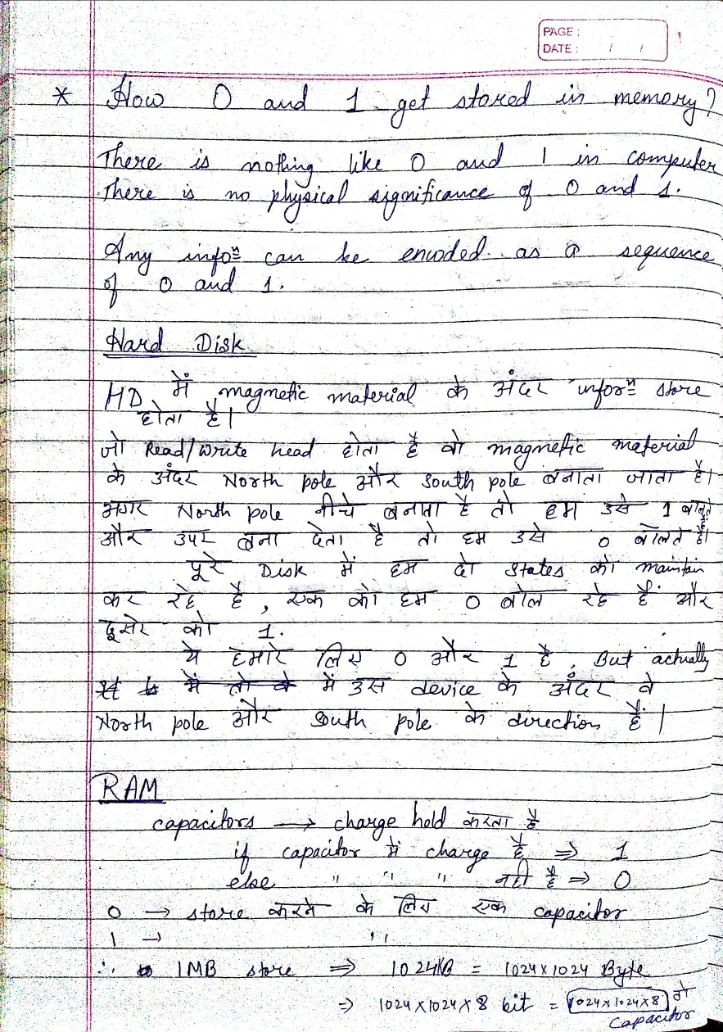 PAGE :
DATE : / /
1
* How 0 and 1 get stored in memory?
There is nothing like 0 and 1 in computer
There is no physical significance of 0 and 1.
Any infoⁿ can be encoded as a sequence
of 0 and 1.
Hard Disk
HD में magnetic material के अंदर inforⁿ store
होता है।
जो Read/Write head होता है वो magnetic material
के अंदर North pole और South pole बनाता जाता है।
अगर North pole नीचे बनाता है तो हम उसे 1 बोलते
और उपर बना देता है तो हम उसे 0 बोलते है।
पूरे Disk में हम दो states को maintain
कर रहे है, एक को हम 0 बोल रहे हैं और
दूसरे को 1.
ये हमारे लिए 0 और 1 है. But actually
में उस device के अंदर वे
North pole और South pole के direction है।
RAM
capacitors → charge hold करता है
if capacitor में charge है ⇒ 1
else " " " नहीं है ⇒ 0
0 → store करने के लिए एक capacitor
1 → "
∴ 1MB store ⇒ 1024KB = 1024×1024 Byte
⇒ 1024×1024×8 bit = 1024×1024×8 तो
capacitor